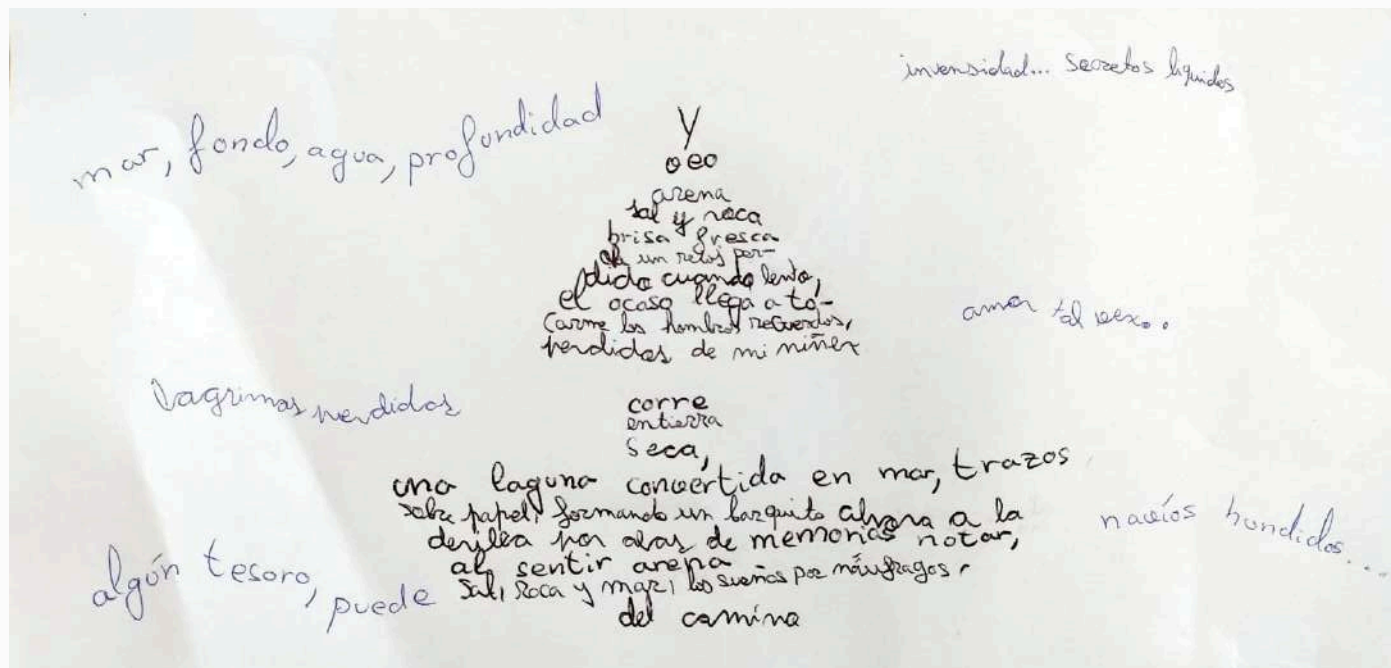 invensidad... secretos líquidos
mar, fondo, agua, profundidad
y
oeo
arena
sal y roca
brisa fresca
de un reloj per-
dido cuando lento,
el ocaso llega a to-
carme los hombros recuerdos,
perdidos de mi niñez
amor tal vez...
lagrimas perdidas
corre
entierra
seca,
una laguna convertida en mar, trazos
sobre papel, formando un barquito ahora a la
por olas de memorias notar,
al sentir arena
sal, roca y mar, los sueños por náufragos
del camino
navíos hundidos....
algún tesoro, puede